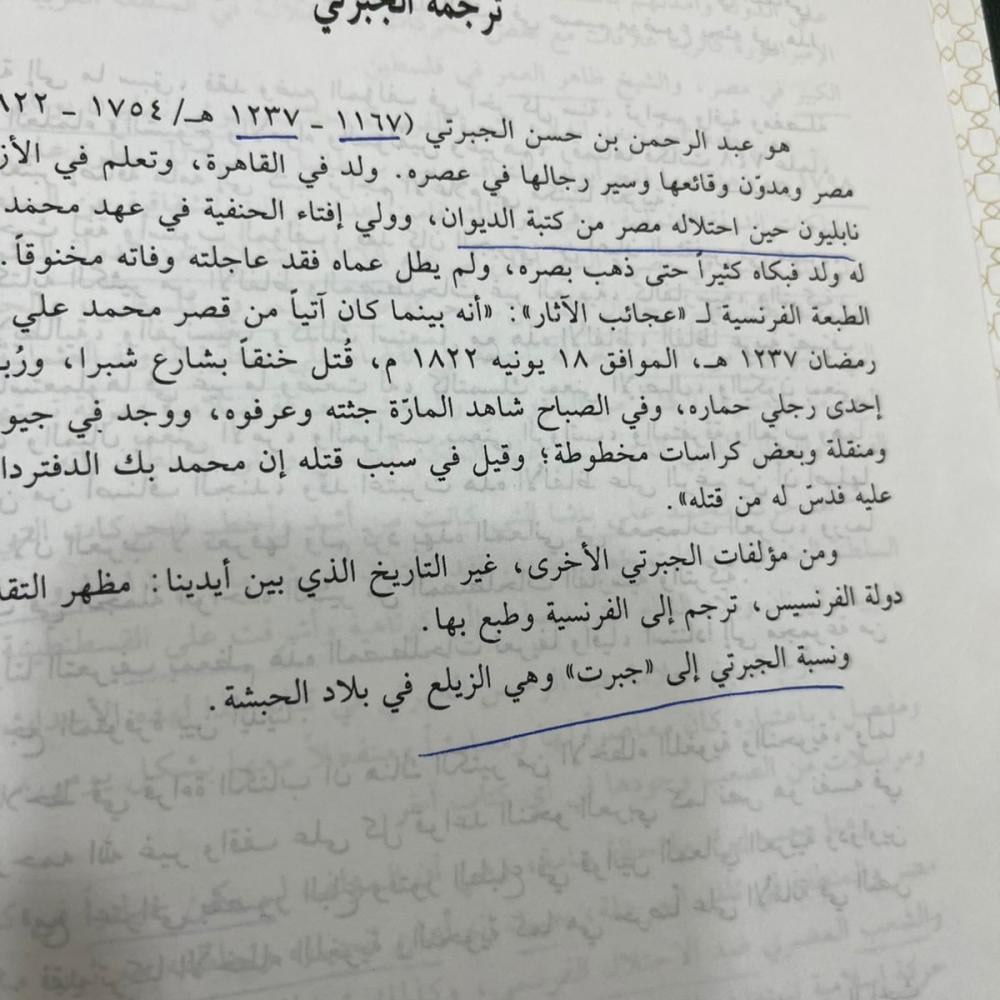 ترجمة الجبرتي
هو عبد الرحمن بن حسن الجبرتي (١١٦٧ - ١٢٣٧ هـ/ ١٧٥٤ -
مصر ومدوّن وقائعها وسير رجالها في عصره. ولد في القاهرة، وتعلم في
نابليون حين احتلاله مصر من كتبة الديوان، وولي إفتاء الحنفية في عهد محمد
له ولد فبكاه كثيراً حتى ذهب بصره، ولم يطل عماه فقد عاجلته وفاته مخنوقاً.
الطبعة الفرنسية لـ «عجائب الآثار»: «أنه بينما كان آتياً من قصر محمد علي
رمضان ١٢٣٧ هـ، الموافق ١٨ يونيه ١٨٢٢ م، قُتل خنقاً بشارع شبرا،
إحدى رجلي حماره، وفي الصباح شاهد المارّة جثته وعرفوه، ووجد في
ومنقلة وبعض كراسات مخطوطة؛ وقيل في سبب قتله إن محمد بك
عليه فدسّ له من قتله».
ومن مؤلفات الجبرتي الأخرى، غير التاريخ الذي بين أيدينا: مظهر
دولة الفرنسيس، ترجم إلى الفرنسية وطبع بها.
ونسبة الجبرتي إلى «جبرت» وهي الزيلع في بلاد الحبشة.